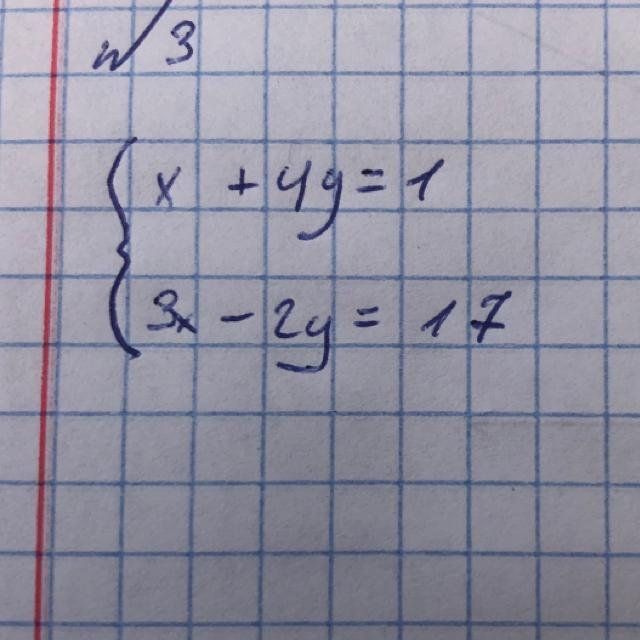 №3
x + 4y = 1
3x - 2y = 17